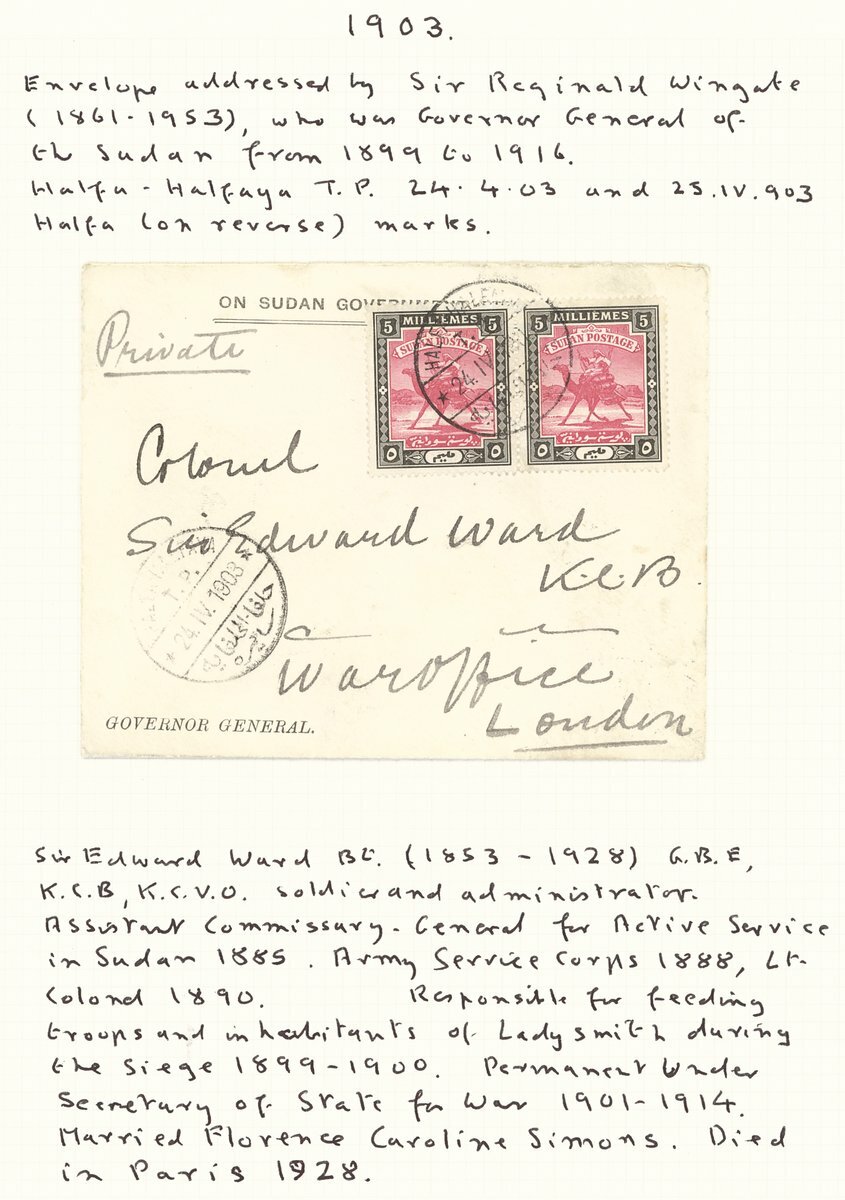 1903.
Envelope addressed by Sir Reginald Wingate
(1861-1953), who was Governor General of
the Sudan from 1899 to 1916.
Halfa-Halfaya T.P. 24.4.03 and 25.IV.903
Halfa (on reverse) marks.
ON SUDAN GOVERNM
Private
5 MILLIÈMES 5
SUDAN POSTAGE
بوستة سودانية
٥ مليم ٥
5 MILLIÈMES 5
SUDAN POSTAGE
بوستة سودانية
٥ مليم ٥
24.IV
Colonel
Sir Edward Ward
K.C.B.
T.P.
24.IV.1903
حلفا-الحلفاية
War Office
London
GOVERNOR GENERAL.
Sir Edward Ward Bt. (1853 - 1928) G.B.E,
K.C.B, K.C.V.O. soldier and administrator.
Assistant Commissary-General for Active Service
in Sudan 1885. Army Service Corps 1888, Lt-
Colonel 1890. Responsible for feeding
troops and inhabitants of Ladysmith during
the siege 1899-1900. Permanent Under
Secretary of State for War 1901-1914.
Married Florence Caroline Simons. Died
in Paris 1928.